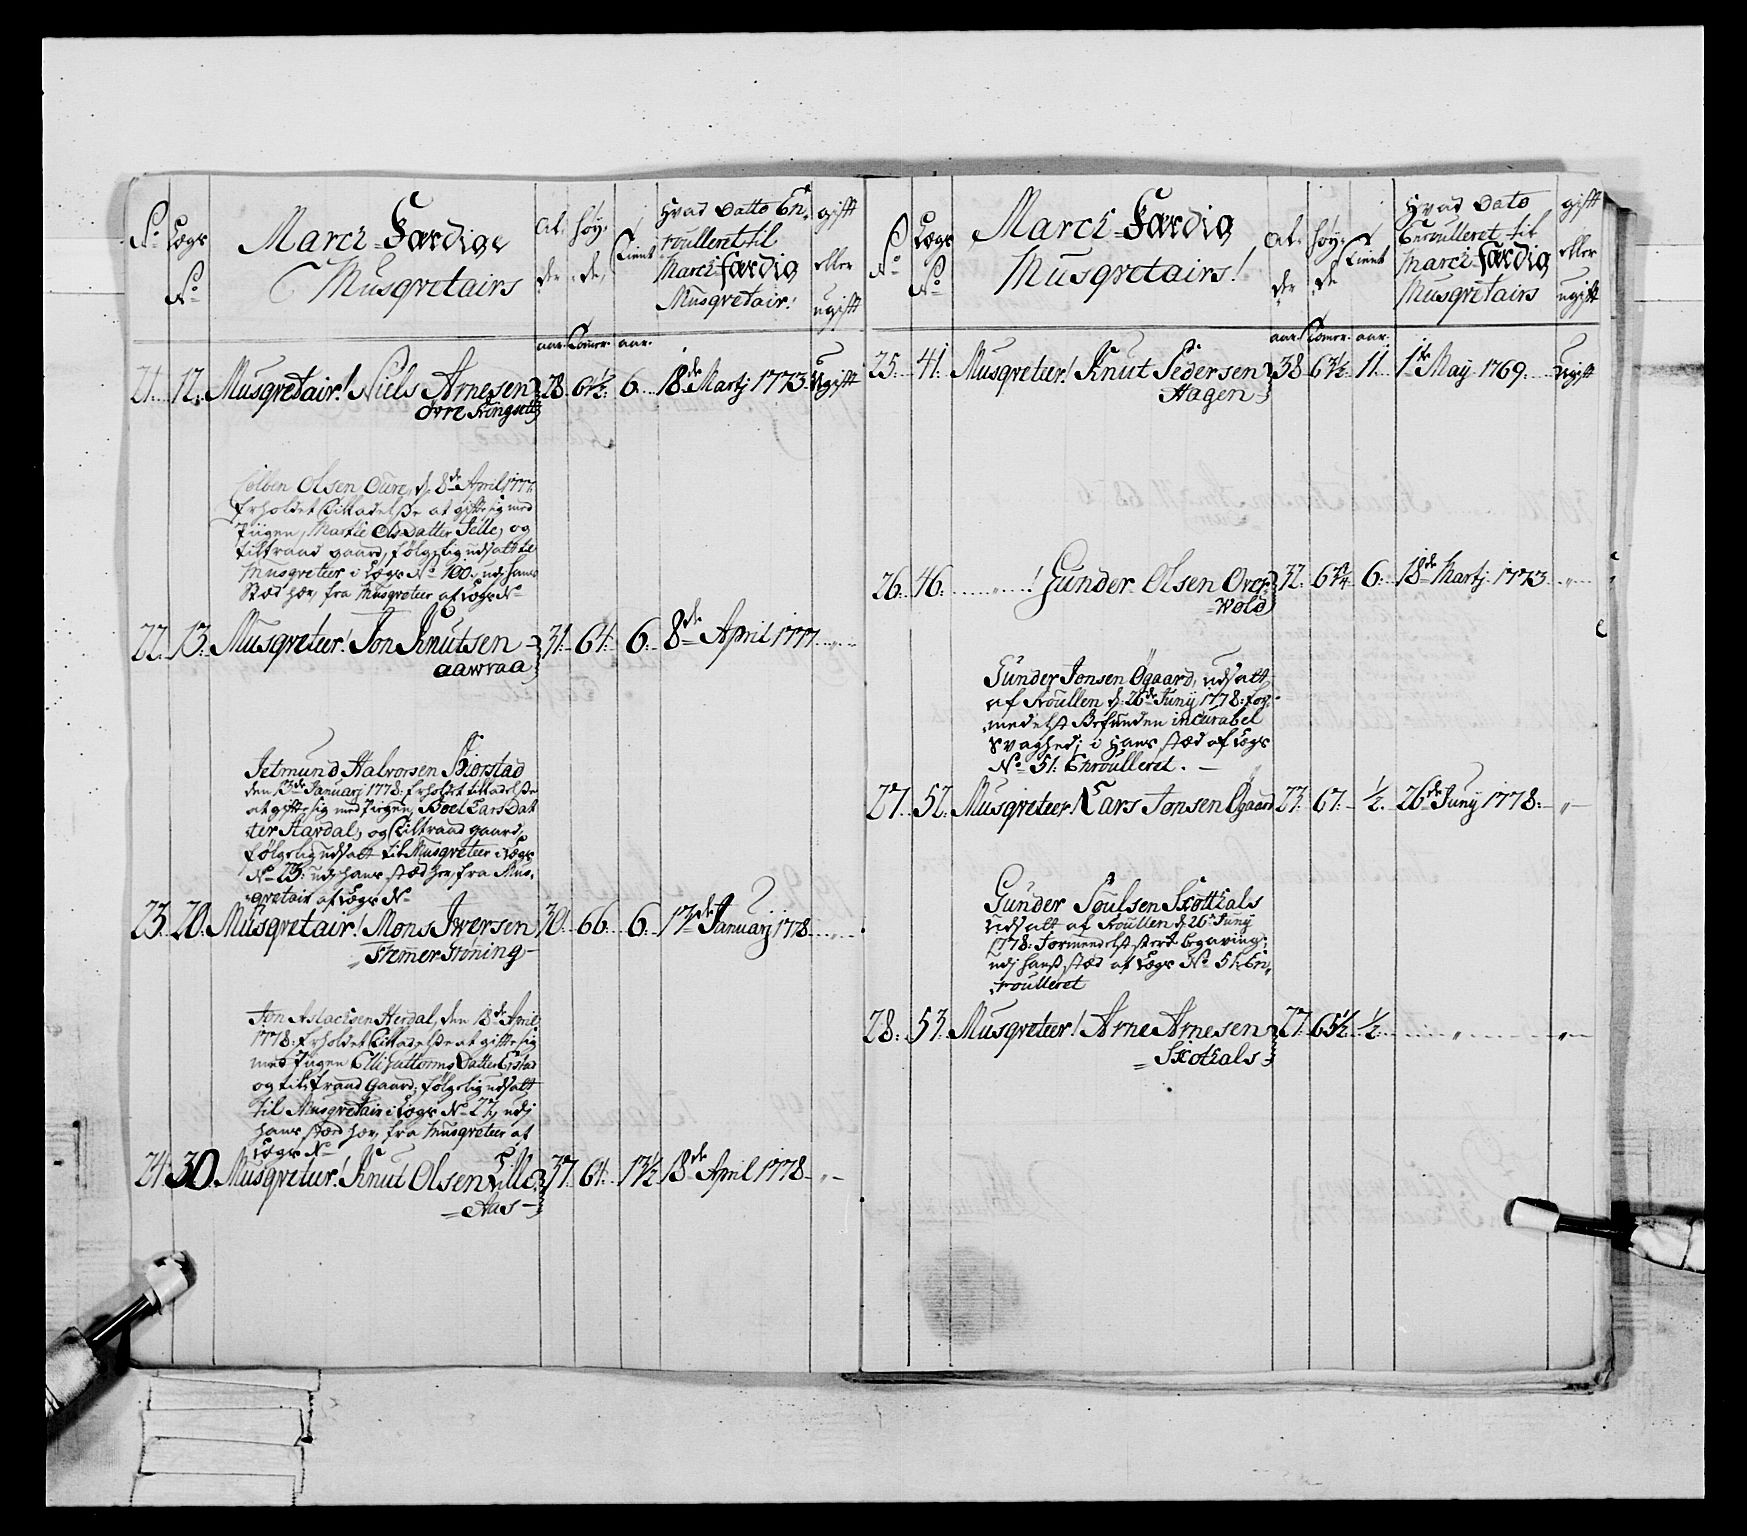 No Lægs No
March-Færdige Musqvetairs
Al: der
Høy: de,
Tient
Hvad Datto En,
roulleret til
March færdig
Musqvetair:
gifft
eller
ugifft
aar. Tomer. aar.
21. 12. Musqvetair! Niels Arnesen 28. 61½. 6. 18de Martj 1773. Ugifft
Øvre
Colben Olsen Oure, d. 8de April 1777
Erholdet Tilladelsse at gifte sig med
Piigen, Marthe Olsdatter Jelle, og
tiltraad gaard, følgelig udsatt til
Musqveteer i Lægs No 100. udj hans
Stæd her, fra Musqveteer af Lægs No
22. 13. Musqveteer! Jon Knutsen 31. 61. 6. 8de April 1777. „
Aawraa
Jetmund Halvorsen Biorstad
den 13de Januarj 1778: Erholdet tilladelsse
at gifte sig med Piigen, Boel Lars Dat
ter Aardal, og Tiltraad gaard,
følgelig udsatt til Musqveteer i Lægs
No 23: udj hans stæd her, fra Mus,
qvetair af Lægs No
23. 20. Musqvetair! Mons Iversen 30. 66. 6. 13de Januarj 1778. „
Jon Aslachsen Herdal, den 18de April
1778: Erholdet Tilladelsse at gifte sig
med Piigen Elli Guttorms Datter
og tiltraad Gaard; følgelig udsatt
til Musqvetair i Lægs No 27, udj
hans stæd her, fra Musqveteer af
Lægs No
24. 30. Musqveteer! Knut Olsen Lille 37. 61. 13½ 18de April 1778 „
Aas
No Lægs No
March-Færdig
Musqvetairs!
Al: der
Høy: de
Tient
Hvad Dato
Enroulleret til
March-Færdig
Musqvetairs
gifft
eller
ugifft
aar. Tomer. aar.
25. 41. Musqveteer! Knut Pedersen 38 63½. 11. 1de May 1769. Ugift
Hagen
26. 46. „ ! Gunder Olsen Ørch 32. 6. 18de Martj 1773 „
wold
Gunder Jonsen Øgaard, udsatt
af Roullen d: 26de Junij 1778: for,
medelst Befunden incurabel
Svaghed; i Hans stæd af Lægs
No 51: Enroulleret.
27. 52. Musqveteer! Lars Jonsen Øgaard 23. 67. ½. 26de Junij 1778. „
Gunder Poulsen Skottkals
udsatt af Roullen d: 26de Junij
1778: Formedelst
udj hans stæd af Lægs No 51: En,
roulleret
28. 53. Musqveteer! Arne Arnesen 27. 65½. ½. „ „
Skotkals